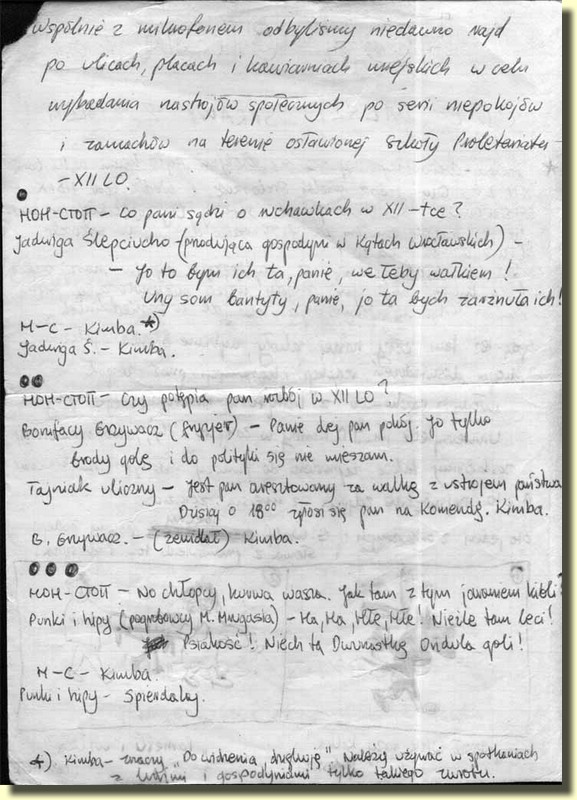 Wspólnie z mikrofonem odbyliśmy niedawno rajd
po ulicach, placach i kawiarniach miejskich w celu
wybadania nastrojów społecznych po serii niepokojów
i zamachów na terenie osławionej szkoły Proletariatu –
– XII LO.
НОН-СТОП – Co pani sądzi o ruchawkach w XII-tce?
Jadwiga Ślepciucho (prodująca gospodyni w Kątach Wrocławskich) –
– Jo to bym ich ta, panie, we łeby wałkiem!
Uny som bantyty, panie, jo ta bych zarżnuła ich!
Н-С – Kimba. *)
Jadwiga Ś. – Kimba.
НОН-СТОП – Czy potępia pan rozbój w XII LO?
Bonifacy Grzywacz (fryzjer) – Panie dej pan pokój. Jo tylko
brody golę i do polityki się nie mieszam.
Tajniak uliczny – Jest pan aresztowany za walkę z ustrojem państwa
Dzisiaj o 18⁰⁰ zgłosi się pan na Komendę. Kimba.
B. Grzywacz. – (zemdlał) Kimba.
НОН-СТОП – No chłopcy, kurwa wasza. Jak tam z tym jaraniem kibli?
Punki i hipy (pogrobowcy M. Mrugasia) – Ha, Ha, Hłe, Hłe! Nieźle tam leci!
Psiakość! Niech tą Dwunastkę Ondula goli!
Н-С – Kimba.
Punki i hipy – Spierdalaj.
*) Kimba – znaczy "Do widzenia, dziękuję". Należy używać w spotkaniach
z ludźmi i gospodyniami tylko takiego zwrotu.